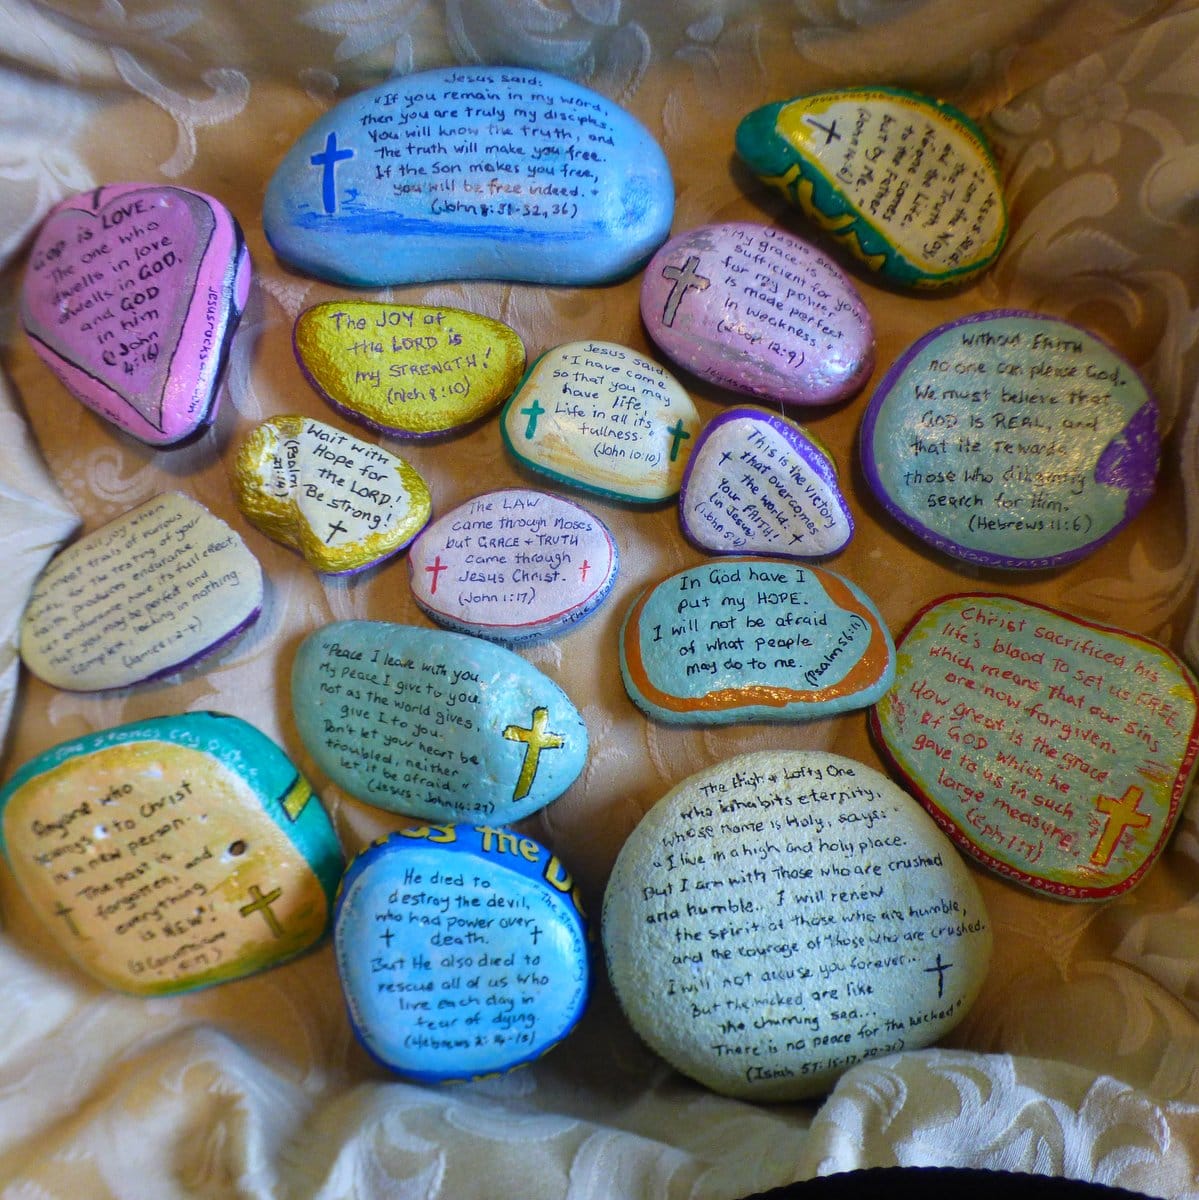 Jesus said:
"If you remain in my word,
then you are truly my disciples.
You will know the truth, and
the truth will make you free.
If the Son makes you free,
you will be free indeed."
(John 8:31-32, 36)
Jesus said:
"I am the Way,
the Truth
and the Life.
No one comes
to the Father
but by Me."
(John 14:6)
GOD is LOVE.
The one who
dwells in love
dwells in GOD,
and GOD
in him
(1 John
4:16)
jesusrocksall.com
Jesus says:
"My grace is
sufficient for you
for my power
is made perfect
in weakness."
(2 Cor. 12:9)
The JOY of
the LORD is
my STRENGTH!
(Neh 8:10)
Jesus said:
"I have come
so that you may
have life,
Life in all its
fullness."
(John 10:10)
Without FAITH
no one can please God.
We must believe that
GOD is REAL, and
that He rewards
those who diligently
search for Him.
(Hebrews 11:6)
Wait with
Hope for
the LORD!
Be strong!
(Psalm
This is the victory
that overcomes
the world:
your FAITH!
(in Jesus)
(1 John 5:4)
The LAW
came through Moses
but GRACE + TRUTH
came through
Jesus Christ.
(John 1:17)
it all joy when
meet trials of various
for the testing of your
faith produces endurance.
Let endurance have its full effect,
that you may be perfect and
complete, lacking in nothing.
(James 1:2-4)
In God have I
put my HOPE.
I will not be afraid
of what people
may do to me.
(Psalm 56:11)
Christ sacrificed his
life's blood to set us FREE,
which means that our sins
are now forgiven.
How great is the grace
of GOD which he
gave to us in such
large measure.
(Eph 1:7)
"Peace I leave with you.
My peace I give to you,
not as the world gives,
give I to you.
Don't let your heart be
troubled, neither
let it be afraid."
(Jesus - John 14:27)
The stones cry out
Anyone who
belongs to Christ
is a new person.
The past is
forgotten, and
everything
is NEW!
(2 Corinthians
5:17)
the
He died to
destroy the devil,
who had power over
death.
But He also died to
rescue all of us who
live each day in
fear of dying.
(Hebrews 2:14-15)
The High & Lofty One
who inhabits eternity,
whose Name is Holy, says:
"I live in a high and holy place.
But I am with those who are crushed
and humble. I will renew
the spirit of those who are humble,
and the courage of those who are crushed.
I will not accuse you forever...
But the wicked are like
the churning sea...
There is no peace for the wicked"
(Isiah 57:15-17, 20-21)